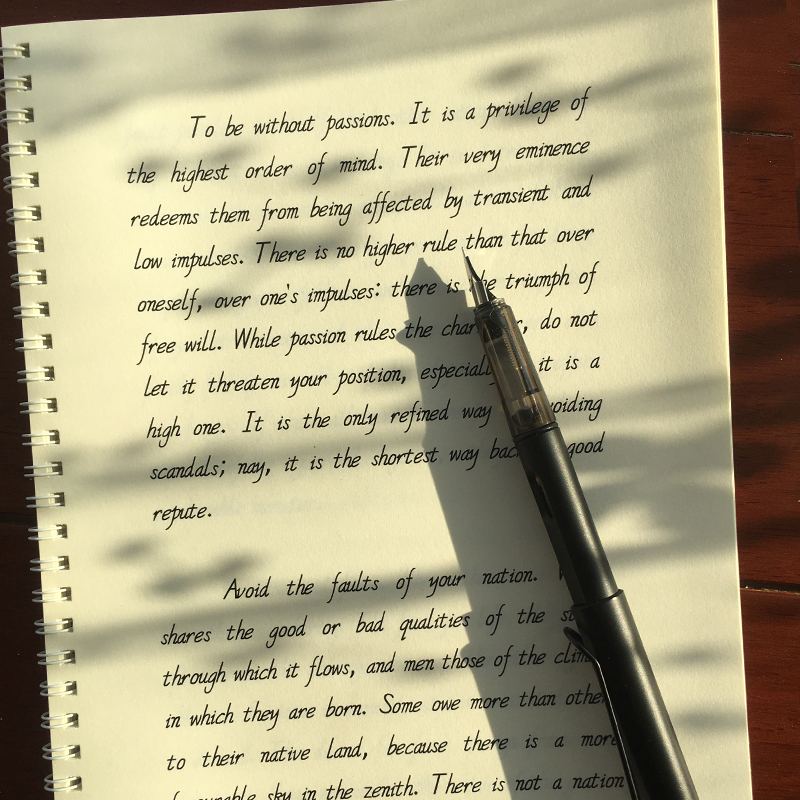 To be without passions. It is a privilege of
the highest order of mind. Their very eminence
redeems them from being affected by transient and
low impulses. There is no higher rule than that over
oneself, over one's impulses: there is the triumph of
free will. While passion rules the char r, do not
let it threaten your position, especially it is a
high one. It is the only refined way voiding
scandals; nay, it is the shortest way back good
repute.
Avoid the faults of your nation. W
shares the good or bad qualities of the st
through which it flows, and men those of the clim
in which they are born. Some owe more than othe
to their native land, because there is a more
sky in the zenith. There is not a nation